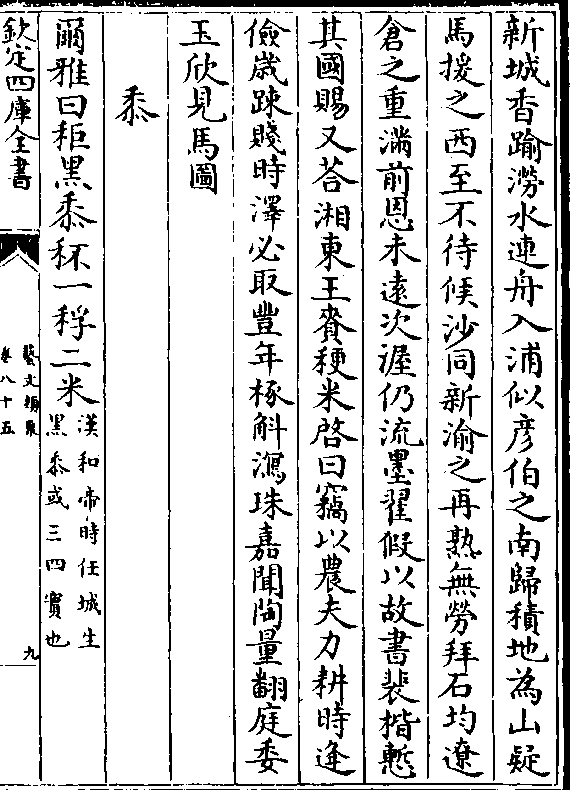 新城香踰澇水連舟入浦似彦伯之南歸積地為山疑
馬援之西至不待候沙同新渝之再熟無勞拜石均遼
倉之重滿前恩未遠次渥仍流墨翟假以故書裴楷慙
其國賜又荅湘東王賚稉米啓曰竊以農夫力耕時逢
儉歳踈賤時澤必取豐年椓斛瀉珠嘉聞陶量翻庭委
玉欣見馬圖
黍
爾雅曰秬黒黍秠一稃二米漢和帝時任城生
黒黍或三四實也
欽定四庫全書
藝文類聚
卷八十五
九